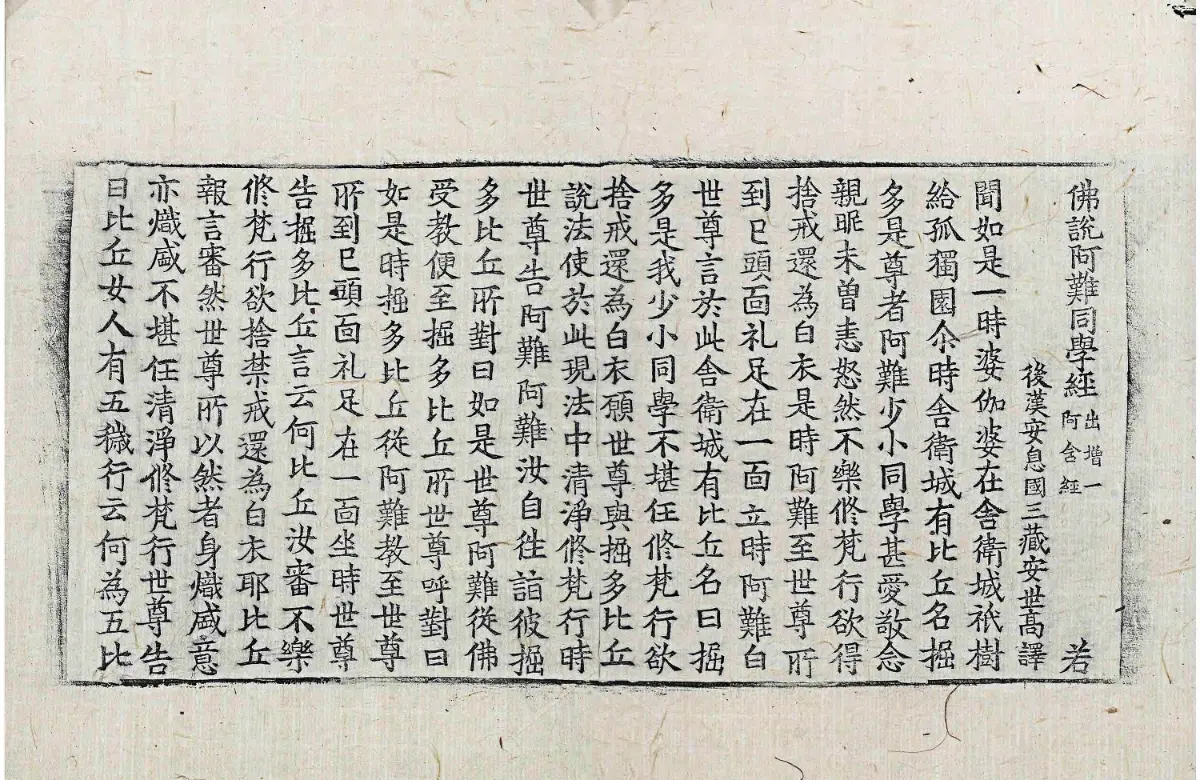 佛說阿難同學經 出增一阿含經 若
後漢安息國三藏安世高譯
聞如是一時婆伽婆在舍衛城祇樹
給孤獨園尒時舍衛城有比丘名掘
多是尊者阿難少小同學甚愛敬念
親昵未曾恚怒然不樂俢梵行欲得
捨戒還為白衣是時阿難至世尊所
到已頭面礼足在一面立時阿難白
世尊言於此舍衛城有比丘名曰掘
多是我少小同學不堪任俢梵行欲
捨戒還為白衣願世尊與掘多比丘
說法使於此現法中清淨俢梵行時
世尊告阿難阿難汝自徃詣彼掘
多比丘所對曰如是世尊阿難從佛
受教便至掘多比丘所世尊呼對曰
如是時掘多比丘從阿難教至世尊
所到已頭面礼足在一面坐時世尊
告掘多比丘言云何比丘汝審不樂
俢梵行欲捨禁戒還為白衣耶比丘
報言審然世尊所以然者身熾盛意
亦熾盛不堪任清淨俢梵行世尊告
曰比丘女人有五穢行云何為五比